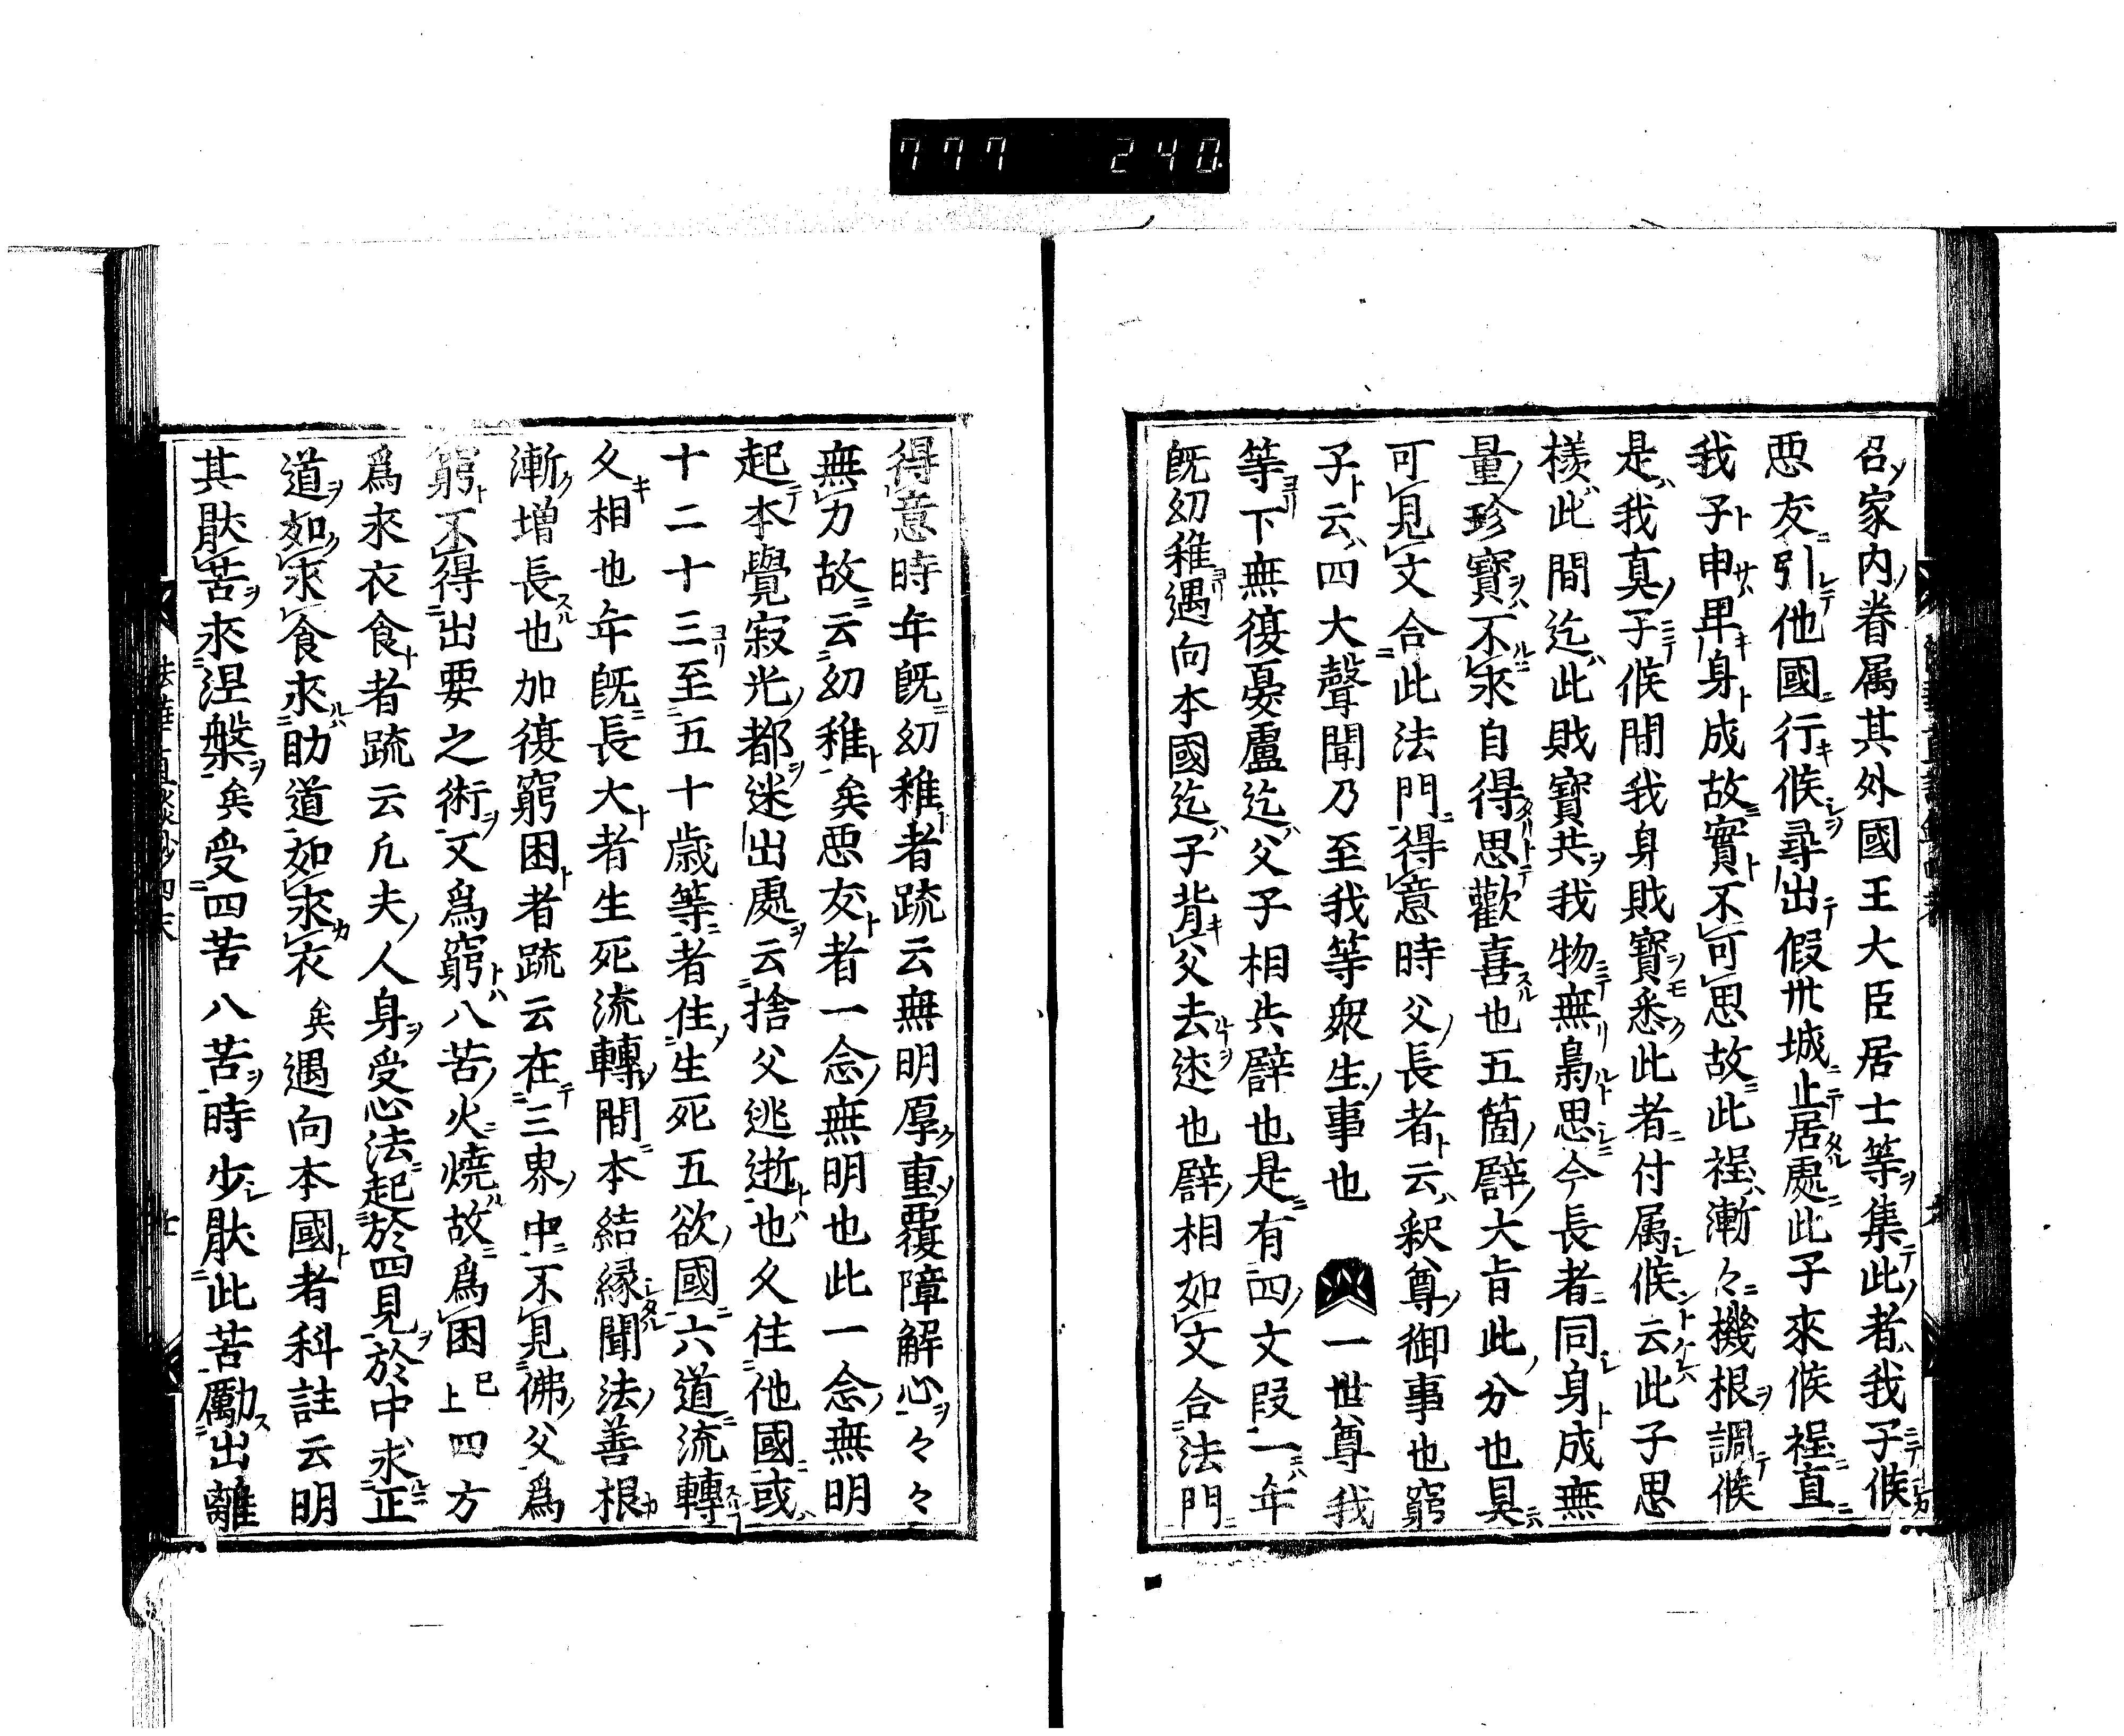 777 240
召家内眷属其外國王大臣居士等集此者我子候
悪友引他國行候尋出假丗城止居處此子來候程直
我子申卑身成故實不可思故此程漸々機根調候
是我真子候間我身賎寳悉此者付属候云此子思
樣此間迄此賎寳共我物無梟思今長者同身成無
量珍寳不求自得思歡喜也五箇譬大旨此分也具
可見文合此法門得意時父長者云釈尊御事也窮
子云四大聲聞乃至我等衆生事也 一世尊我
等下無復憂盧迄父子相共譬也是有四文段一年
既幼稚遇向本國迄子背父去迷也譬相如文合法門
得意時年既幼稚者疏云無明厚重覆障解心々々
無力故云幼稚矣悪友者一念無明也此一念無明
起本覺寂光都迷出處云捨父逃逝也久住他國或
十二十三至五十歳等者住生死五欲國六道流轉
久相也年既長大者生死流轉間本結縁聞法善根
漸增長也加復窮困者疏云在三界中不見佛父爲
窮不得出要之術又爲窮八苦火燒故爲困已上四方
爲求衣食者疏云凡夫人身受心法起於四見於中求正
道如求食求助道如求衣矣遇向本國者科註云明
其猒苦求涅槃矣受四苦八苦時少猒此苦勵出離